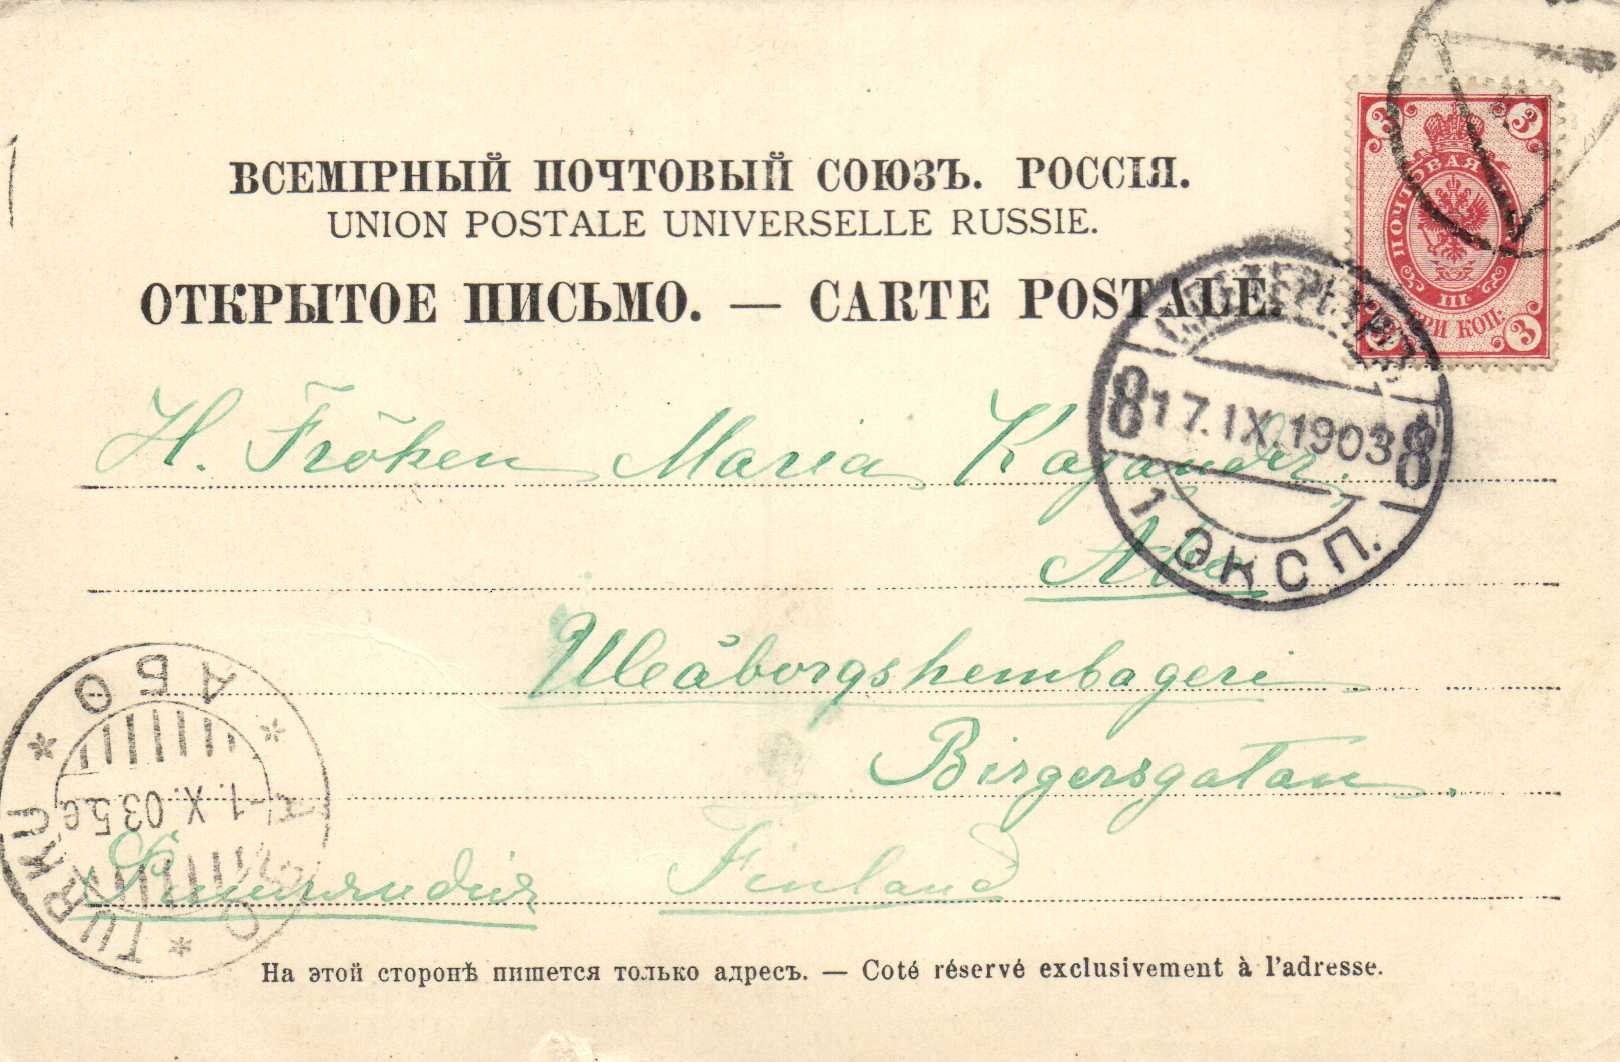 ВСЕМІРНЫЙ ПОЧТОВЫЙ СОЮЗЪ. РОССІЯ.
UNION POSTALE UNIVERSELLE RUSSIE.
ОТКРЫТОЕ ПИСЬМО. — CARTE POSTALE.
3 3
ПОЧТОВАЯ
III.
ТРИ КОП:
3 3
С.ПЕТЕРБУРГЪ
8 17.IX.1903 8
1 ЭКСП.
H. Fröken Maria Kajander.
Åbo
Uleåborgshembageri
Birgersgatan.
Финляндия Finland
АБО
-1.X.03 5e
TURKU
На этой сторонѣ пишется только адресъ. — Coté réservé exclusivement à l'adresse.